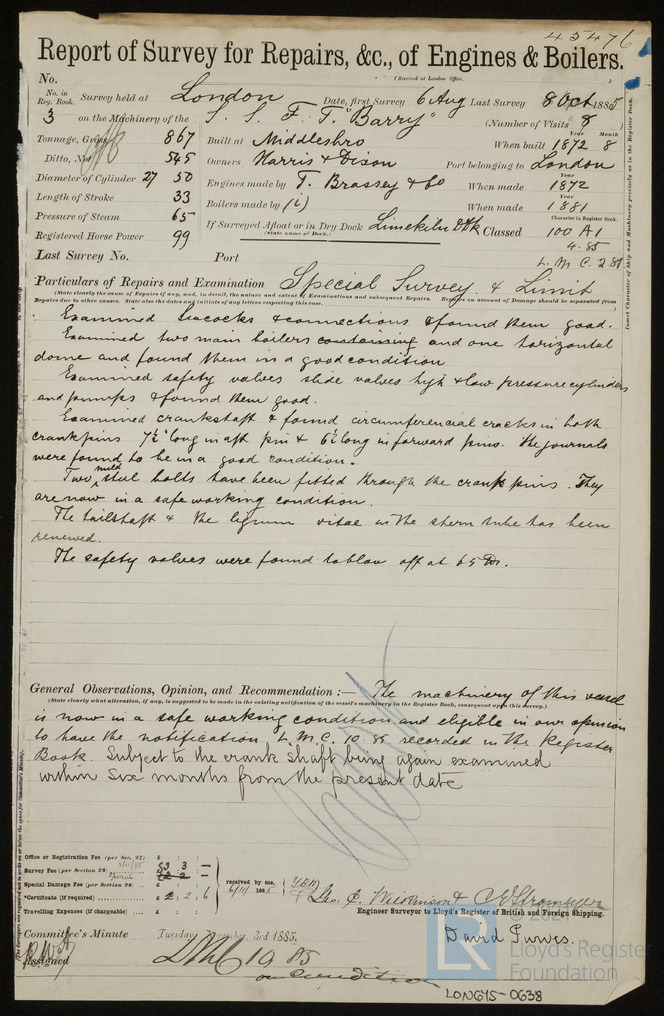 45476
Report of Survey for Repairs, &c., of Engines & Boilers.
(Received at London Office,
No.
No. in Reg. Book. Survey held at London Date, first Survey 6 Aug Last Survey 8 Oct 1885
3 on the Machinery of the S. S. F. T. "Barry" (Number of Visits 8
Tonnage, Gross 867 Built at Middlesbro When built 1872 Year 8 Month
Ditto, Net 545 Owners Harris & Dixon Port belonging to London
Diameter of Cylinder 27 50 Engines made by T. Brassey & Co When made 1872 Year
Length of Stroke 33 Boilers made by (i) When made 1881 Year
Pressure of Steam 65 If Surveyed Afloat or in Dry Dock Limekiln Ddk Classed 100 A1 Character in Register Book.
(State name of Dock.)
4.85
Registered Horse Power 99
L. M. C. 2 81
Last Survey No. Port
Insert Character of Ship and Machinery precisely as in the Register Book.
Particulars of Repairs and Examination Special Survey & Limit
(State clearly the cause of Repairs if any, and, in detail, the nature and extent of Examinations and subsequent Repairs. Reports on account of Damage should be separated from
Repairs due to other causes. State also the dates and initials of any letters respecting this case.
Examined seacocks & connections & found them good.
Examined two main boilers containing and one horizontal
dome and found them in a good condition
Examined safety valves slide valves high & low pressure cylinders
and pumps & found them good.
Examined crankshaft & found circumferencial cracks in both
crankpins 7½" long in aft pin & 6½ long in forward pins. The journals
were found to be in a good condition.
Two mild steel bolts have been fitted through the crank pins. They
are now in a safe working condition.
The tailshaft & the lignum vitae in the stern tube has been
renewed.
The safety valves were found to blow off at 65 lbs.
General Observations, Opinion, and Recommendation :— The machinery of this vessel
(State clearly what alteration, if any, is suggested to be made in the existing notification of the vessel's machinery in the Register Book, consequent upon this survey.)
is now in a safe working condition and eligible in our opinion
to have the notification L.M.C. 10.85 recorded in the Register
Book. Subject to the crank shaft being again examined
within six months from the present date
Office or Registration Fee (per Sec. 27) £ : :
Survey Fee (per Section 28) £3 3 —
Special Damage Fee (per Section 28) £ : :
*Certificate (if required) £ : 2 : 6
Travelling Expenses (if chargeable) £ : :
received by me,
6/11 1885
Geo. C. Wilkinson & C E Stromeyer
Engineer Surveyor to Lloyd's Register of British and Foreign Shipping.
David Purves.
Committee's Minute Tuesday, November, 3rd 1885.
Assigned LMC 10 85
on condition
LR
© 2021
Lloyd's Register
Foundation
LON675-0638